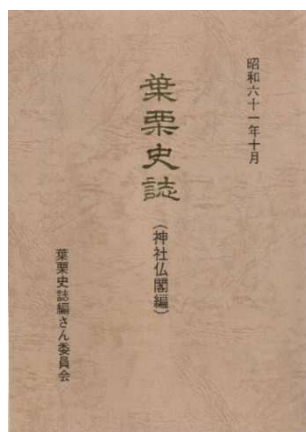 昭和六十一年十月
葉栗史誌
（神社仏閣編）
葉栗史誌編さん委員会